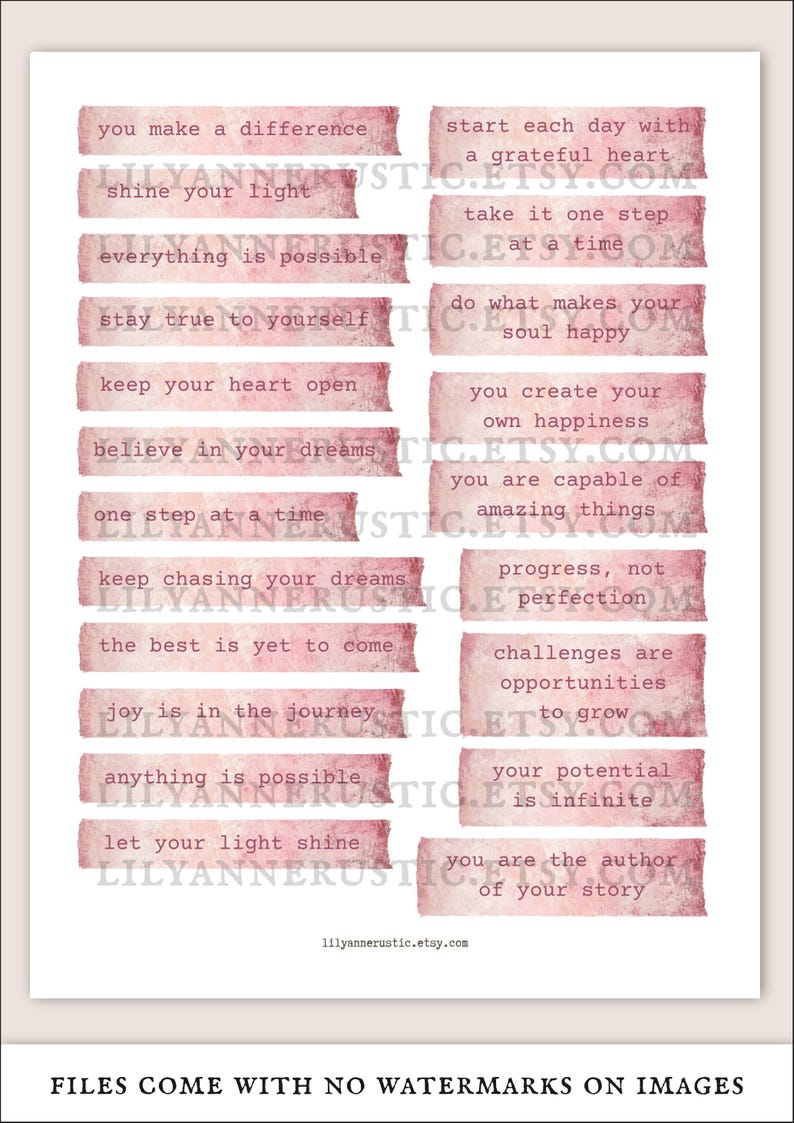 you make a difference
shine your light
everything is possible
stay true to yourself
keep your heart open
believe in your dreams
one step at a time
keep chasing your dreams
the best is yet to come
joy is in the journey
anything is possible
let your light shine
start each day with
a grateful heart
take it one step
at a time
do what makes your
soul happy
you create your
own happiness
you are capable of
amazing things
progress, not
perfection
challenges are
opportunities
to grow
your potential
is infinite
you are the author
of your story
LILYANNERUSTIC.ETSY.COM
LILYANNERUSTIC.ETSY.COM
LILYANNERUSTIC.ETSY.COM
LILYANNERUSTIC.ETSY.COM
LILYANNERUSTIC.ETSY.COM
LILYANNERUSTIC.ETSY.COM
LILYANNERUSTIC.ETSY.COM
LILYANNERUSTIC.ETSY.COM
LILYANNERUSTIC.ETSY.COM
lilyannerustic.etsy.com
FILES COME WITH NO WATERMARKS ON IMAGES